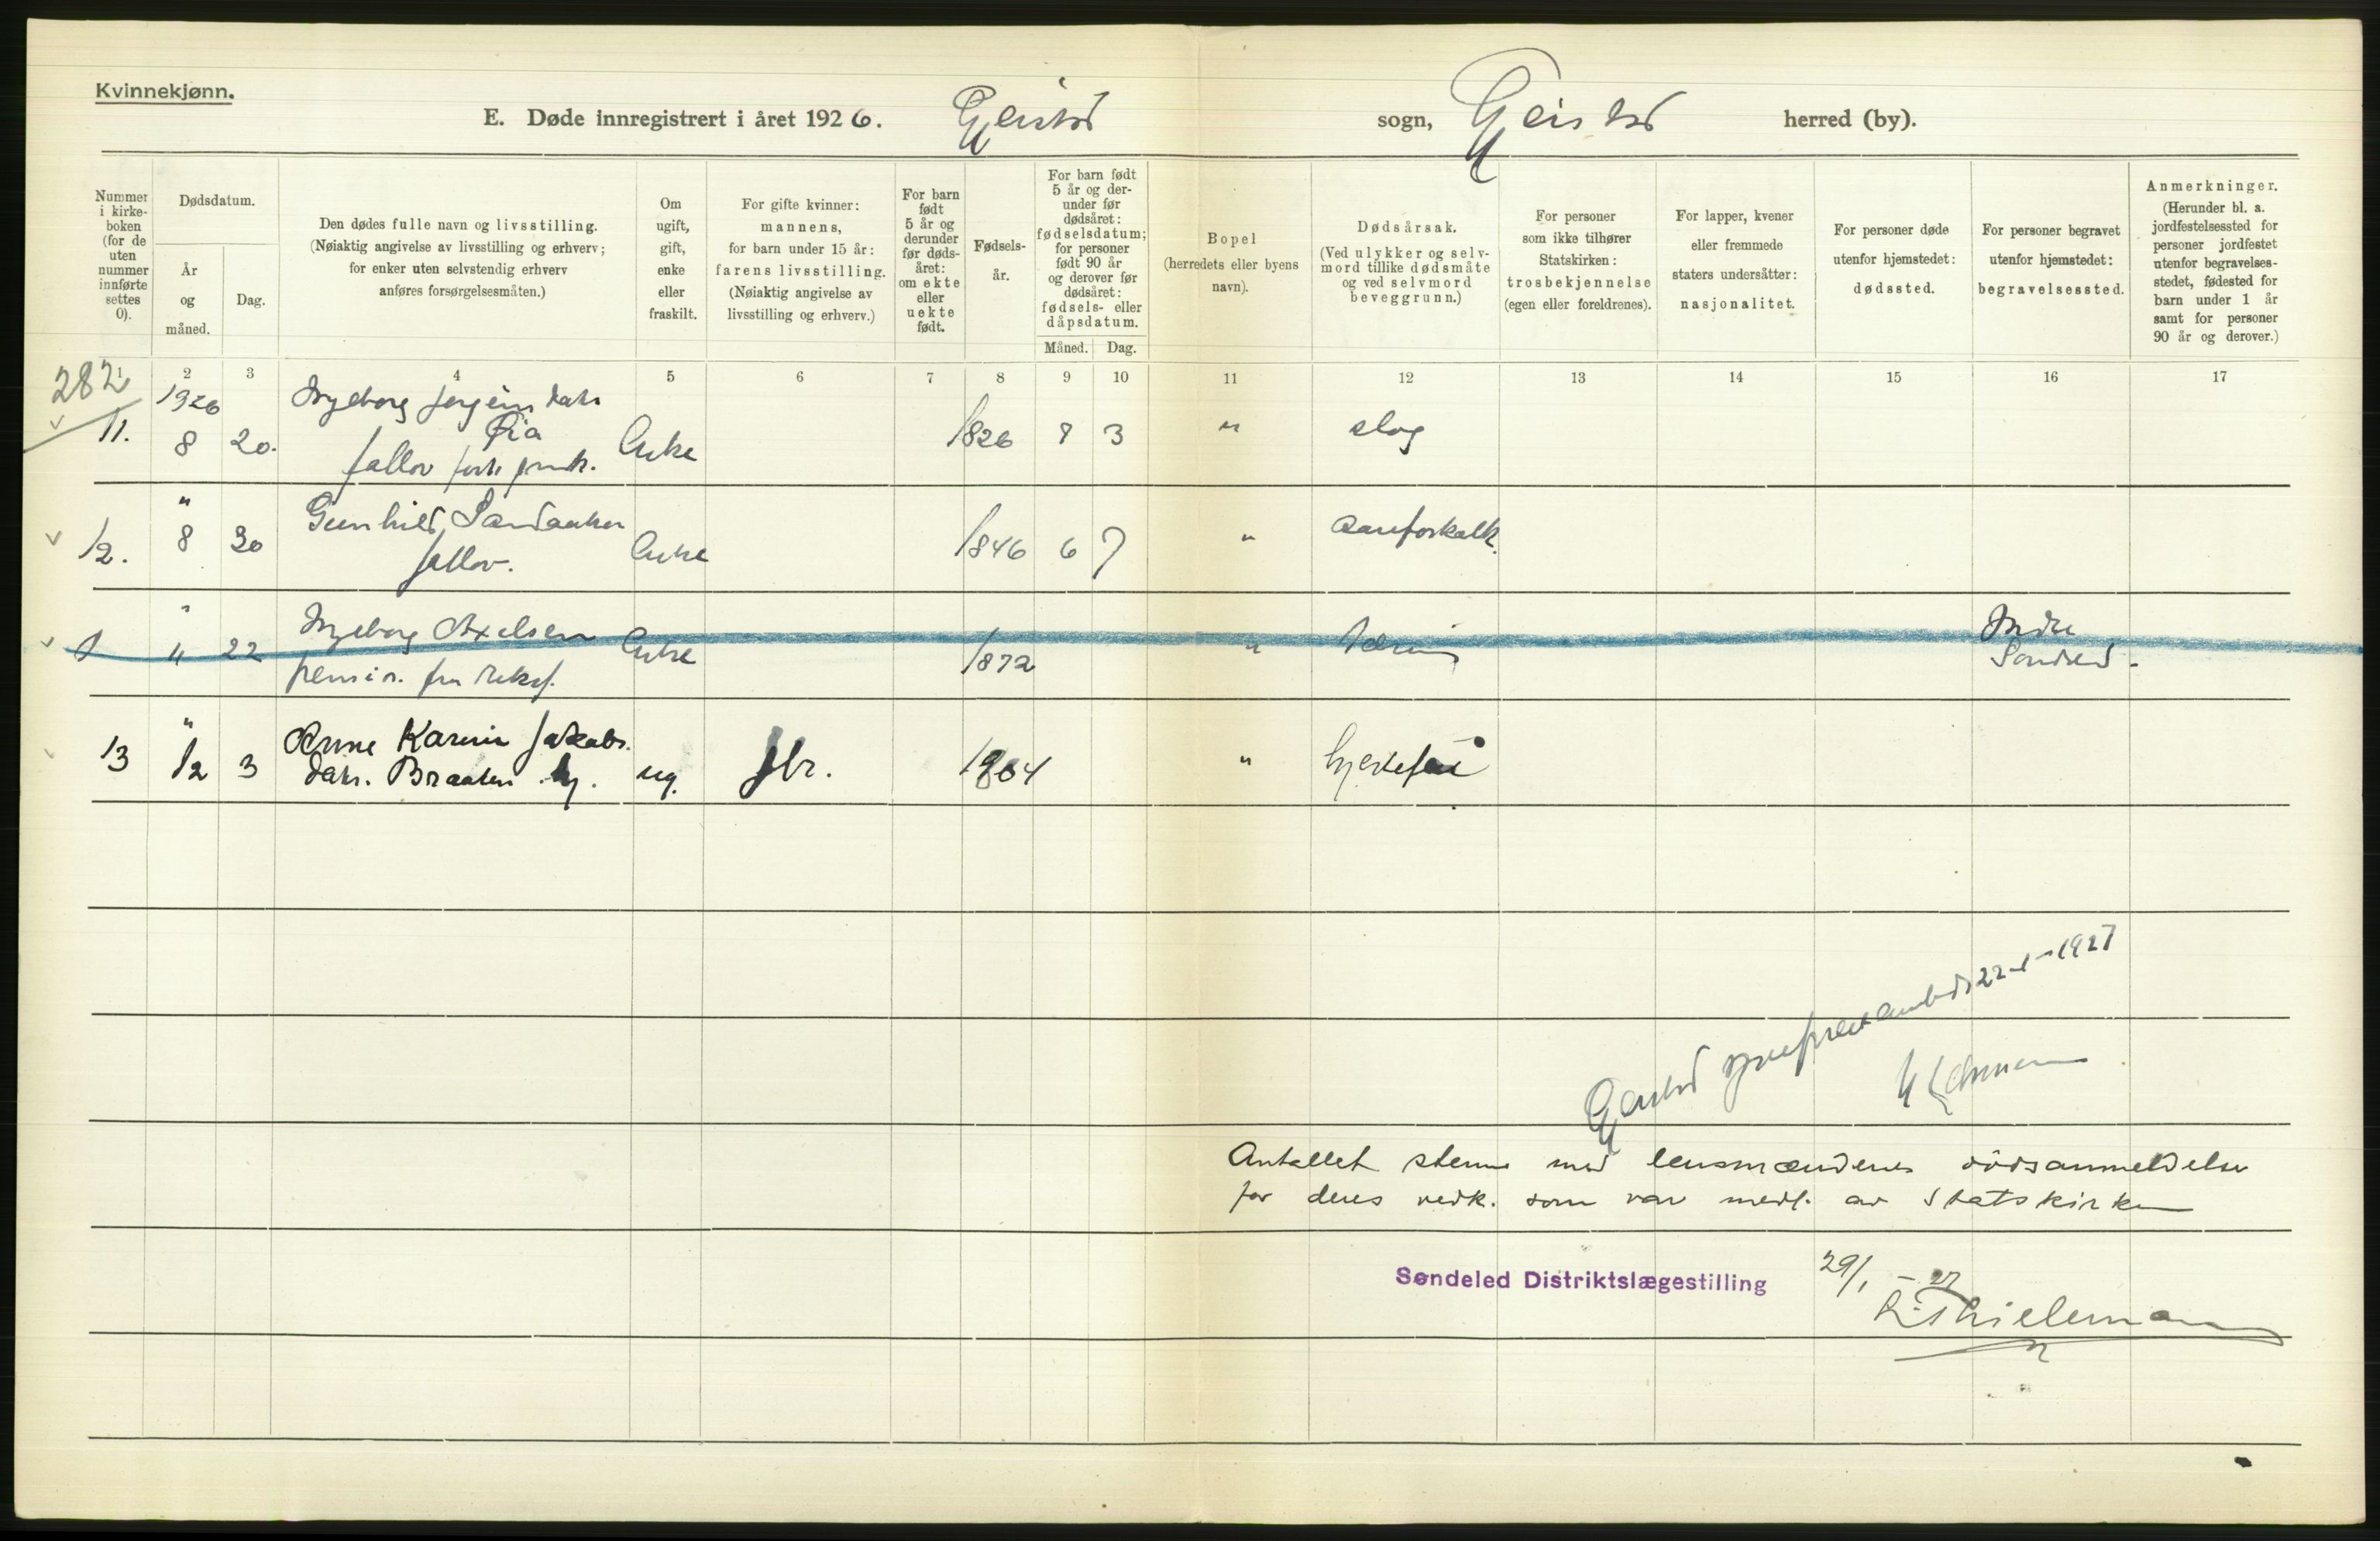 Kvinnekjønn.
E. Døde innregistrert i året 1926. Gjerstad sogn, Gjerstad herred (by).
Nummer i kirke-boken (for de uten nummer innførte settes 0).
Dødsdatum.
År og måned.
Dag.
Den dødes fulle navn og livsstilling.
(Nøiaktig angivelse av livsstilling og erhverv;
for enker uten selvstendig erhverv
anføres forsørgelsesmåten.)
Om ugift, gift, enke eller fraskilt.
For gifte kvinner:
mannens,
for barn under 15 år:
farens livsstilling.
(Nøiaktig angivelse av
livsstilling og erhverv.)
For barn født 5 år og derunder før døds-året: om ekte eller uekte født.
Fødsels-år.
For barn født 5 år og der-under før dødsåret: fødselsdatum; for personer født 90 år og derover før dødsåret: fødsels- eller dåpsdatum.
Måned. Dag.
Bopel
(herredets eller byens
navn).
Dødsårsak.
(Ved ulykker og selv-
mord tillike dødsmåte
og ved selvmord
beveggrunn.)
For personer
som ikke tilhører
Statskirken:
trosbekjennelse
(egen eller foreldrenes).
For lapper, kvener
eller fremmede
staters undersåtter:
nasjonalitet.
For personer døde
utenfor hjemstedet:
dødssted.
For personer begravet
utenfor hjemstedet:
begravelsessted.
Anmerkninger.
(Herunder bl. a.
jordfestelsessted for
personer jordfestet
utenfor begravelses-
stedet, fødested for
barn under 1 år
samt for personer
90 år og derover.)
1 2 3 4 5 6 7 8 9 10 11 12 13 14 15 16 17
282
1926
11. 8 20. Ingeborg Jørgensdatr Øia Enke 1826 8 3 " slag
"
12. 8 30 Gunhild Sandaaker Enke 1846 6 7 " aareforkalk.
"
" 22 Ingeborg Axelsen Enke 1872 "
Indre
Sønded.
"
13 12 3 Anne Karine Jakobs.
datr. Braaten ug. gbr. 1904 " hjertefeil
Gjerstad sogneprestembed 22-1-1927
Antallet stemmer med lensmændenes dødsanmeldelser
for deres vedk. som var medl. av Statskirken
Søndeled Distriktslægestilling 29/1 - 27
Thielemann